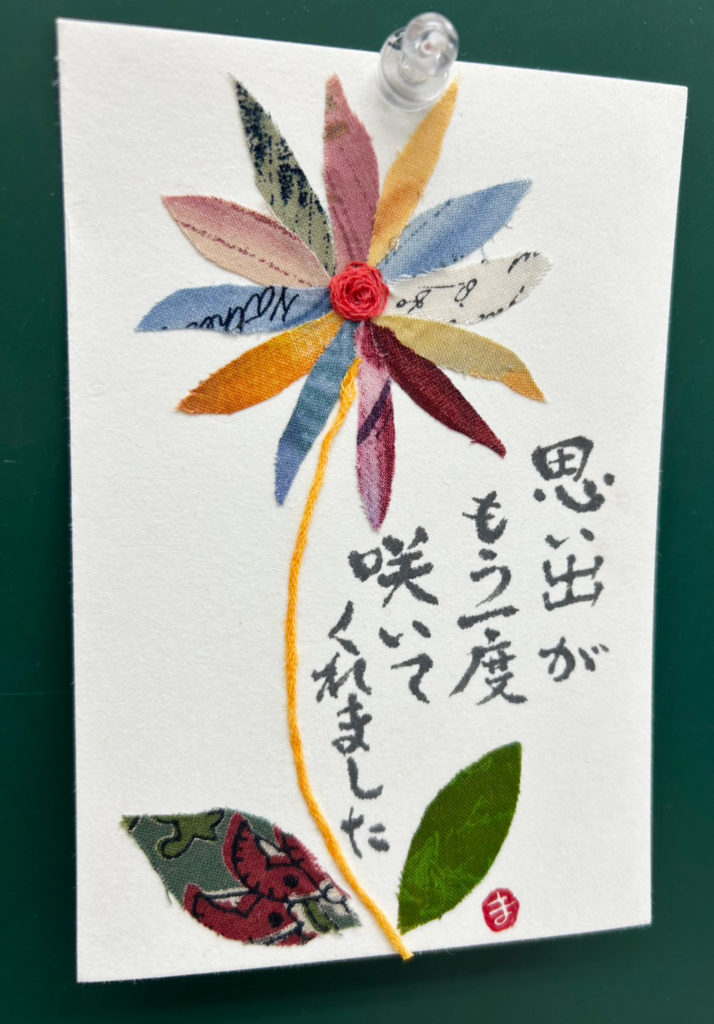 思い出が
もう一度
咲いて
くれました
ま